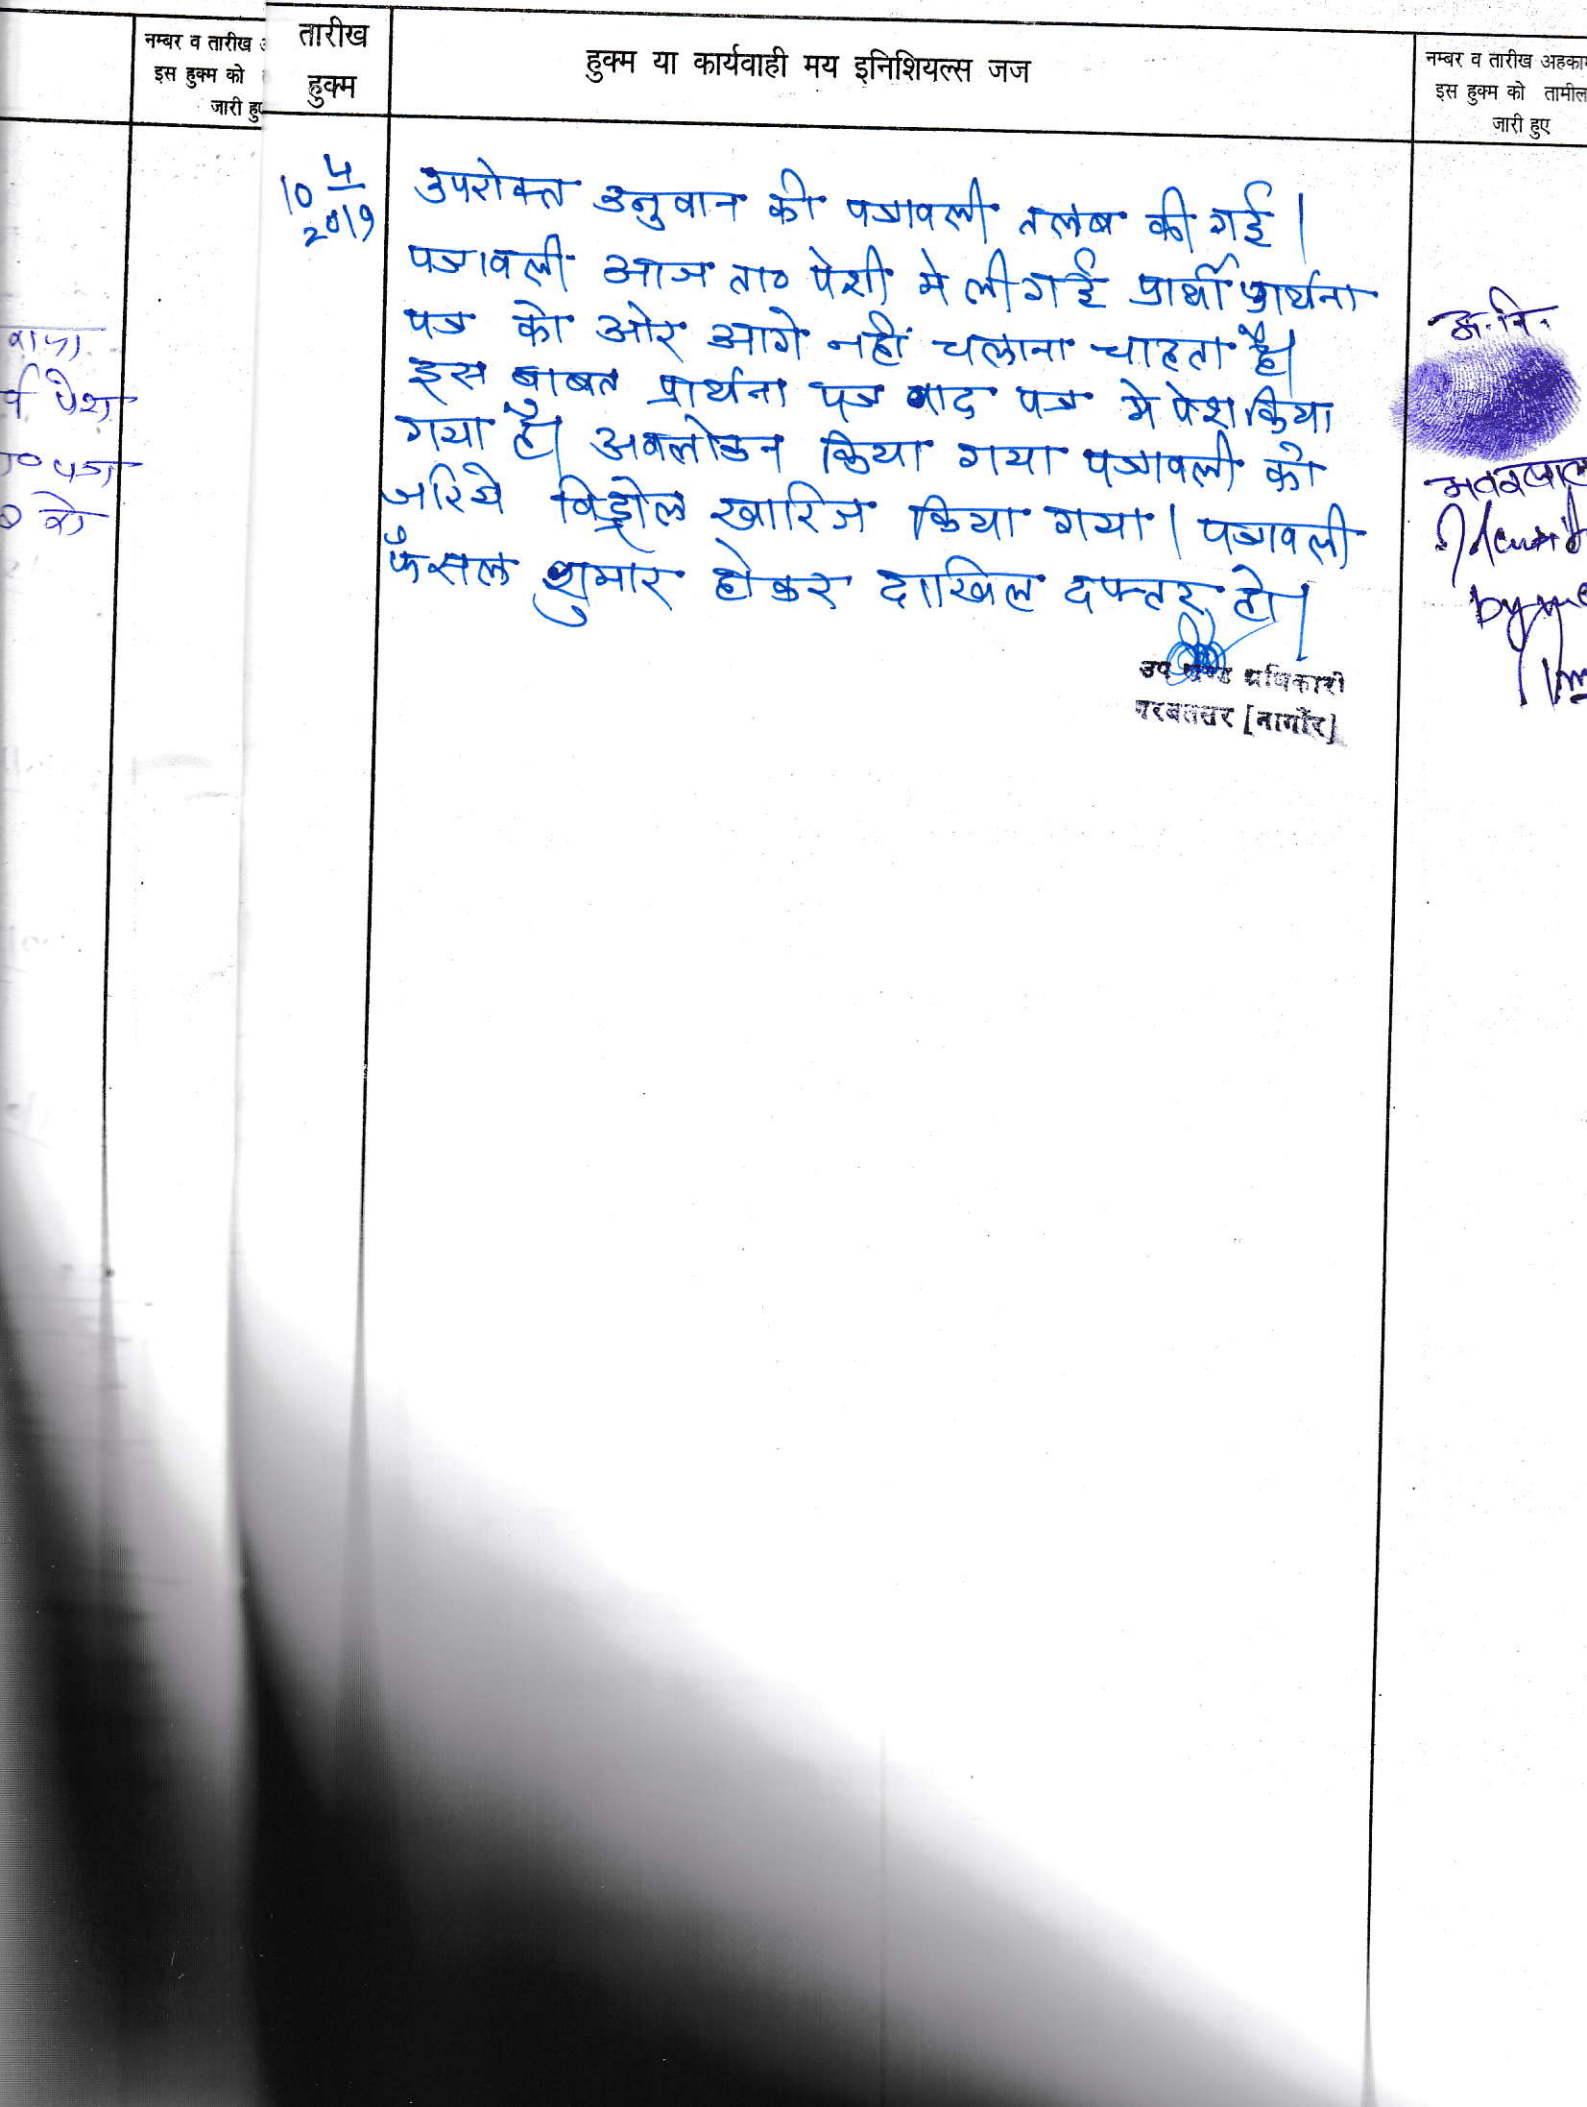 नम्बर व तारीख
इस हुक्म को
जारी हु
तारीख
हुक्म
हुक्म या कार्यवाही मय इनिशियल्स जज
नम्बर व तारीख अहकाम
इस हुक्म को तामील
जारी हुए
10 4/2019
उपरोक्त उनुवान की पत्रावली तलब की गई।
पत्रावली आज ता० पेशी मे ली गई प्रार्थी प्रार्थना
पत्र को ओर आगे नहीं चलाना चाहता है।
इस बाबत प्रार्थना पत्र वाद पत्र मे पेश किया
गया है। अवलोकन किया गया पत्रावली को
जरिये विड्रोल खारिज किया गया। पत्रावली
फैसल शुमार होकर दाखिल दफ्तर हो।
उप खण्ड अधिकारी
परबतसर [नागौर]
अ.नि.
पेश
पत्र
को